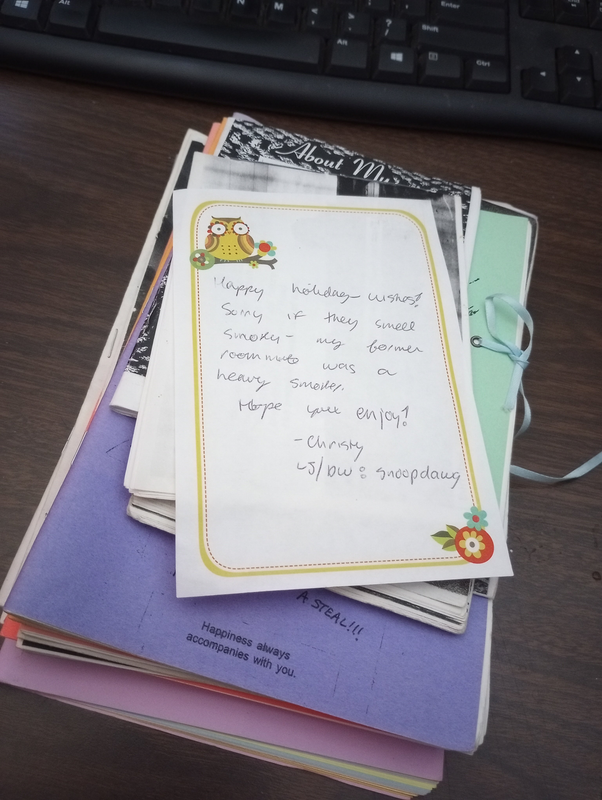 Enter
N
M
Shift
Alt
Alt
Ctrl
About My
Happy holiday wishes!
Sorry if they smell
smoky - my former
roommate was a
heavy smoker.
Hope you enjoy!
- Christy
LJ/DW: snoopdawg
A STEAL!!!
Happiness always
accompanies with you.